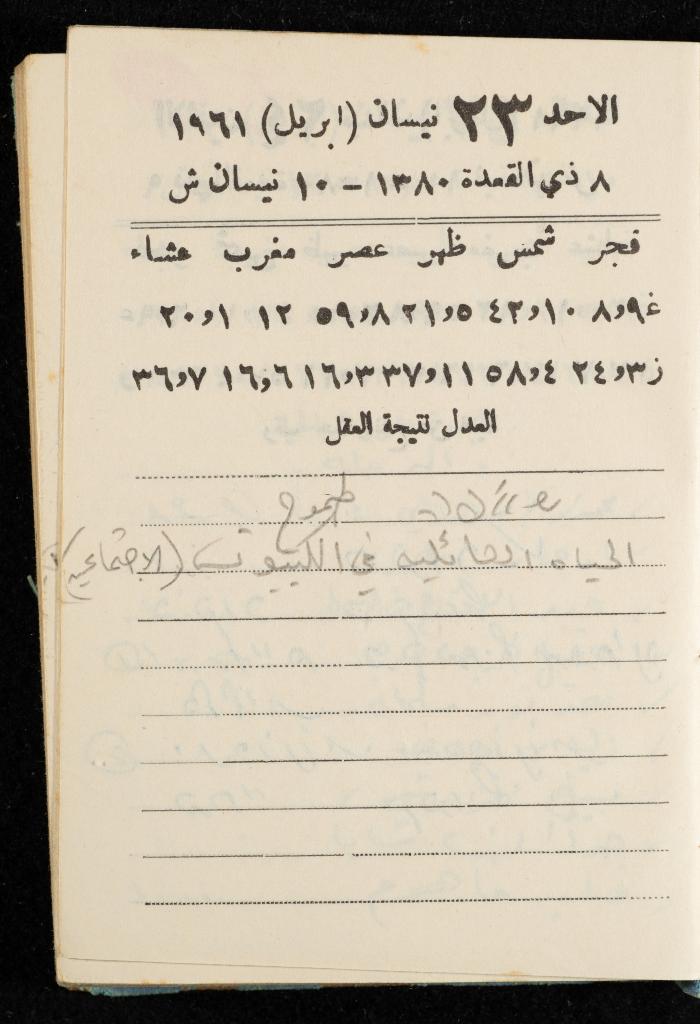 الاحد ٢٣ نيسان (ابريل) ١٩٦١
٨ ذي القعدة ١٣٨٠ – ١٠ نيسان ش
فجر شمس ظهر عصر مغرب عشاء
غ ٨و٩ ١٠و٤٢ ٥و٢١ ٨و٥٩ ١٢ ١و٢٠
ز ٣و٢٤ ٤و٥٨ ١١و٣٧ ٣و١٦ ٦و١٦ ٧و٣٦
العدل نتيجة العقل
طموح
الحياه العائليه في الكيبوتس (الاجتماعيه)